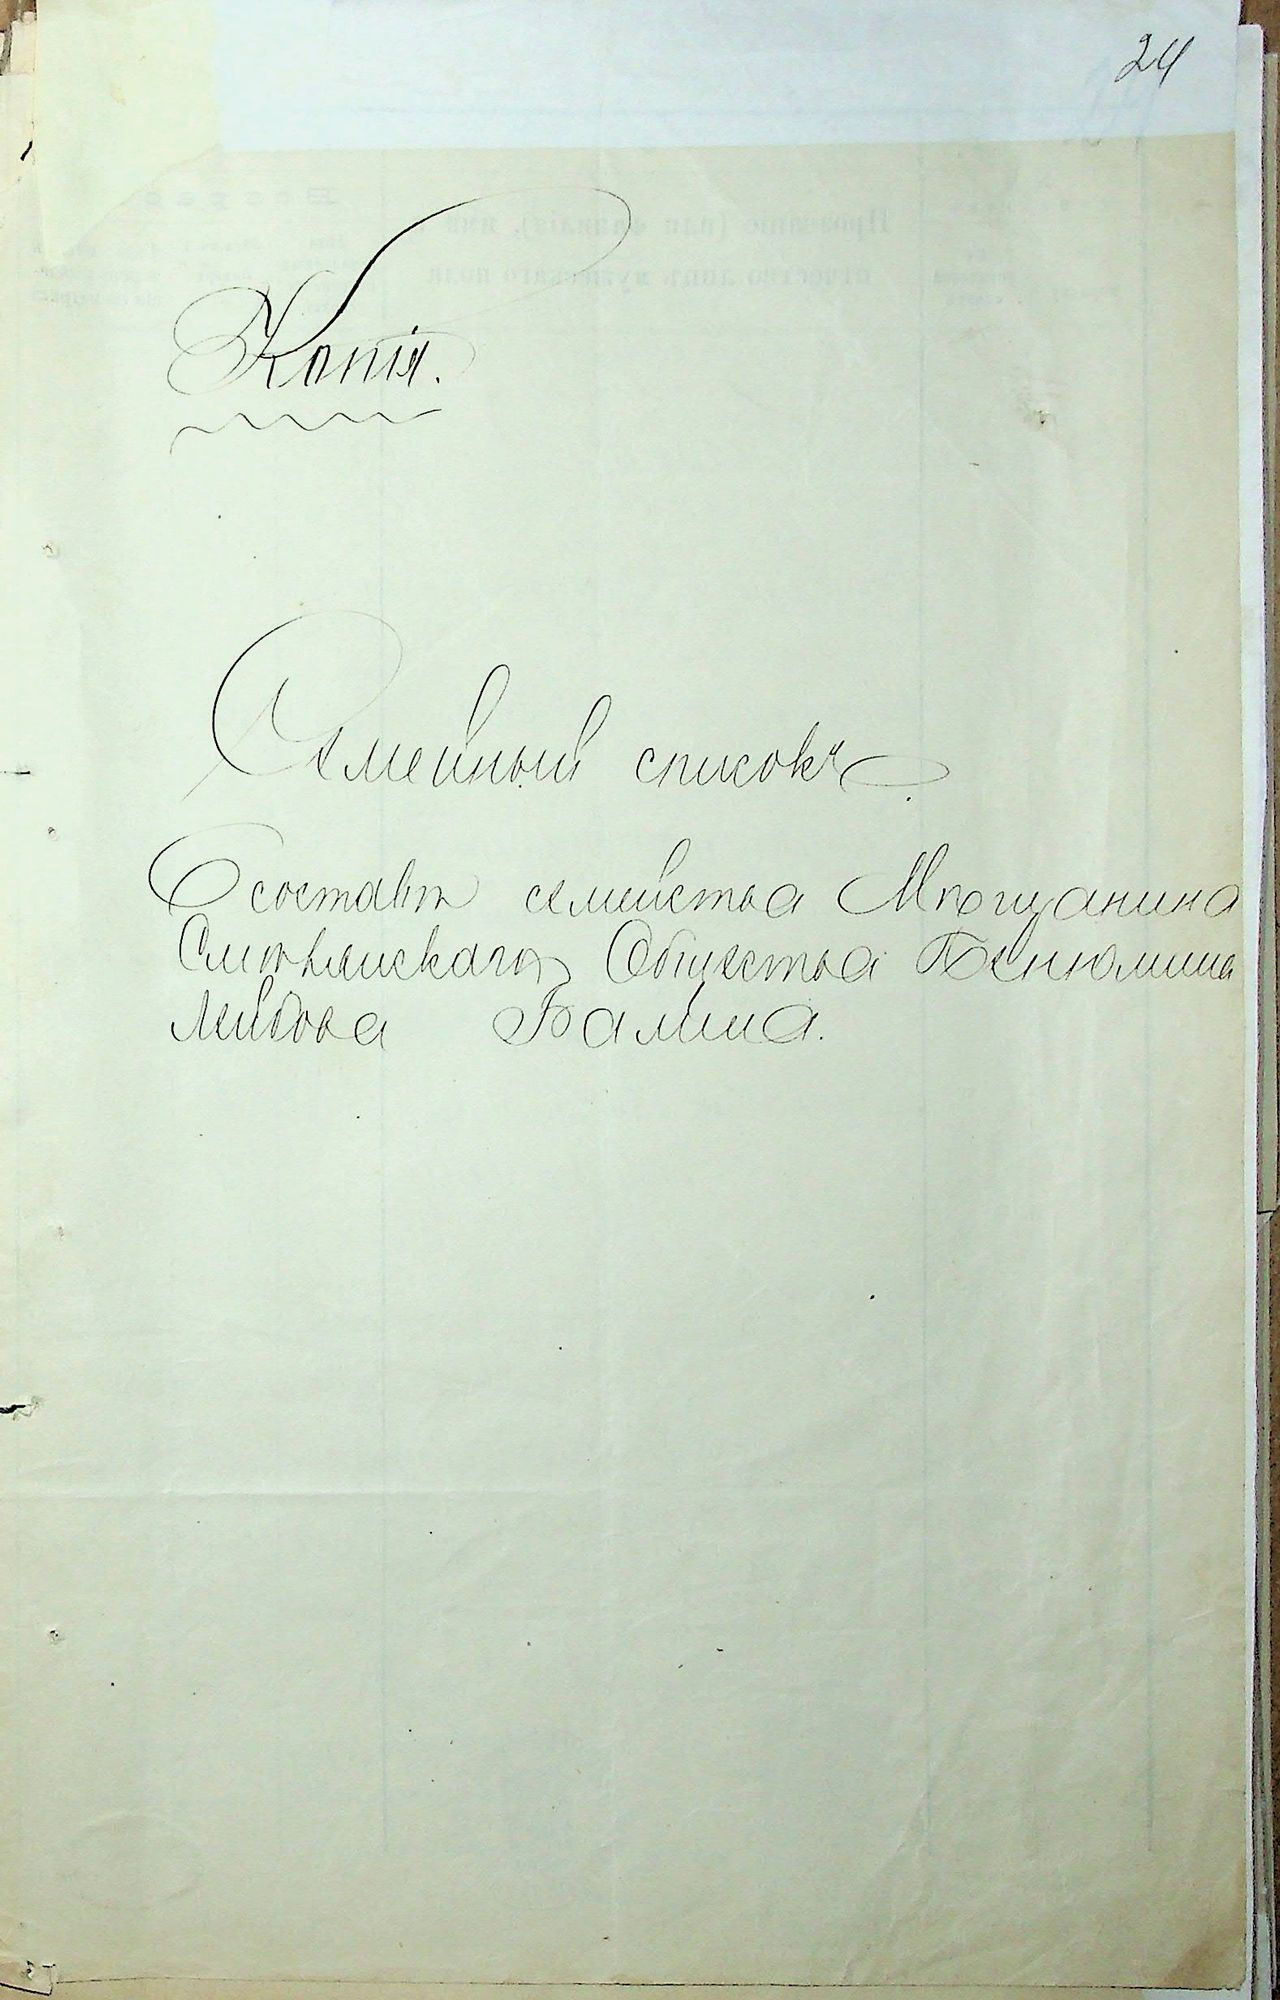 24
Копія.
Семейный списокъ
О составѣ семейства Мѣщанина
Смолянскаго Общества Бенюмина
Лейбова Балина.